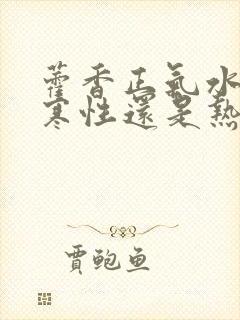 藿香正氣水
寒性還是熱
賈鮑魚